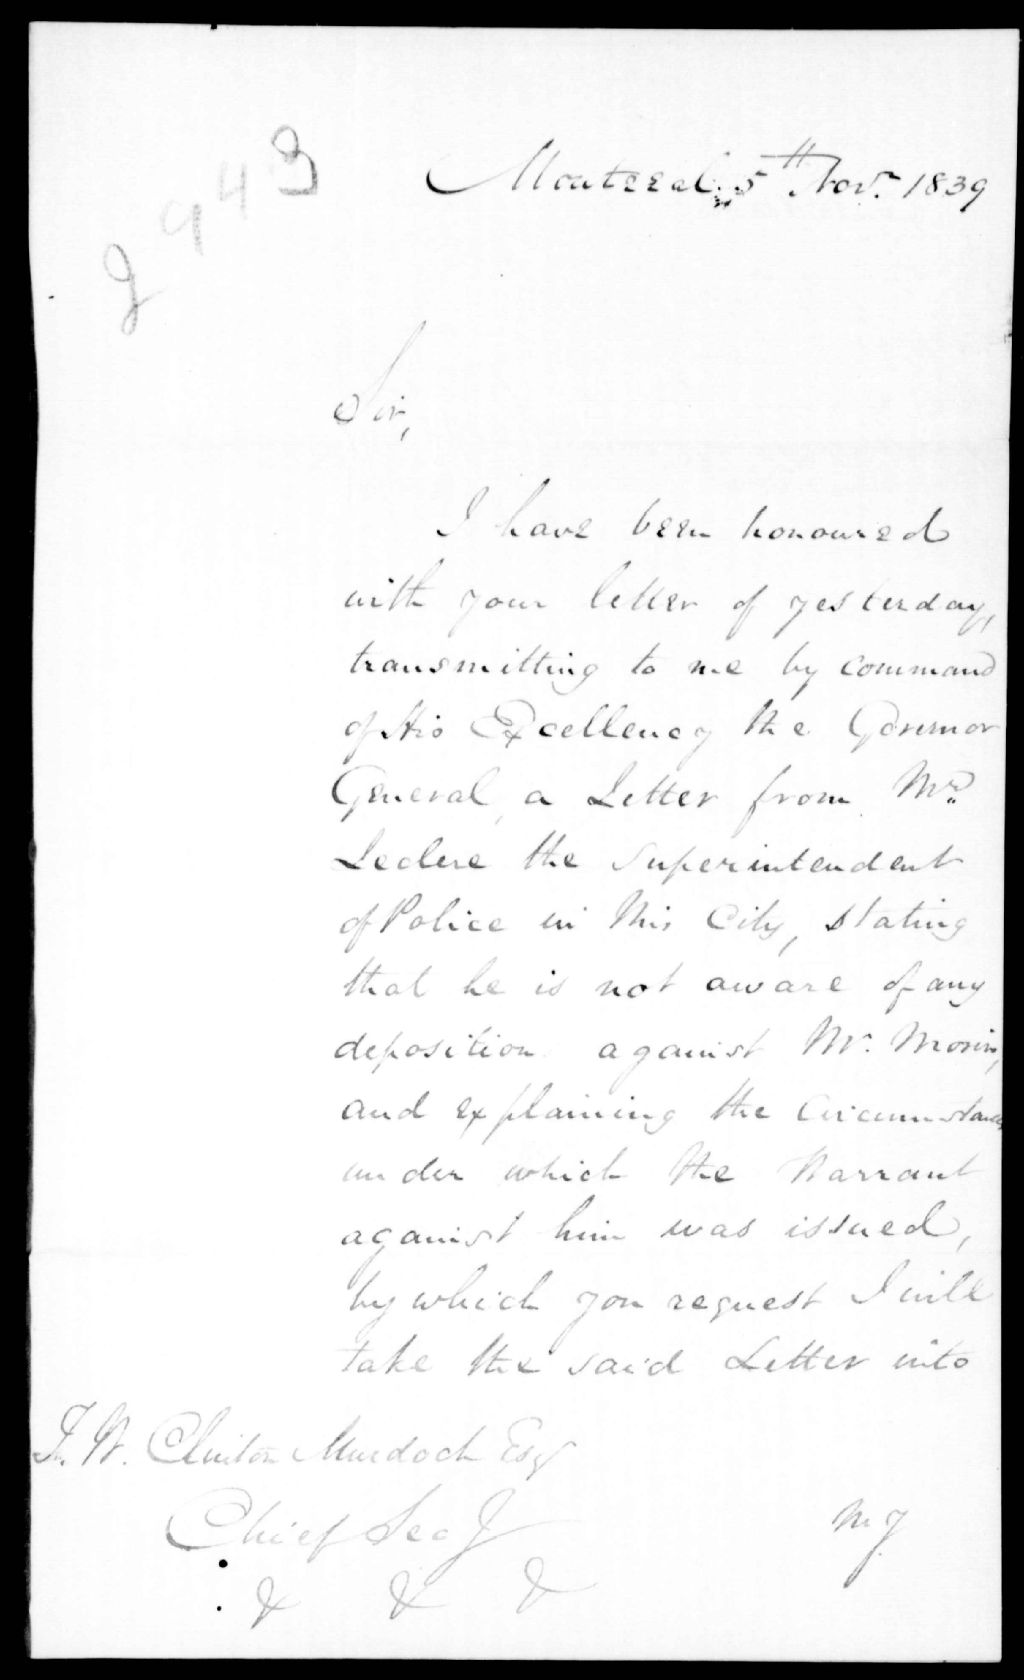 9443
Montreal, 5th Novr. 1839
Sir,
I have been honoured
with your letter of yesterday,
transmitting to me by command
of His Excellency the Governor
General, a Letter from Mr.
Leclere the Superintendent
of Police in this City, stating
that he is not aware of any
deposition against Mr. Morin,
and explaining the Circumstances
under which the Warrant
against him was issued,
by which you request I will
take the said Letter into
T. W. Clinton Murdoch Esqr
Chief Secy
& & &
my